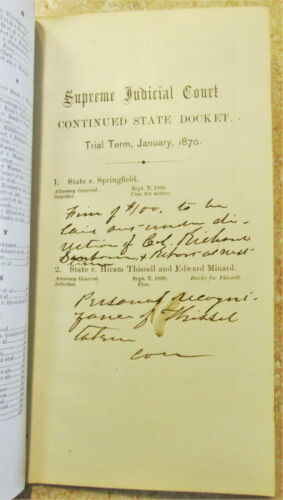 Supreme Judicial Court
CONTINUED STATE DOCKET.
Trial Term, January, 1870.
1. State v. Springfield.
Attorney General. Sept. T. 1869.
Solicitor. Con. for notice.
Fine of $100. to be
laid out under di-
rection of Col. Richard
Sanborn, & Report at next
term
2. State v. Hiram Thissell and Edward Minard.
Attorney General. Sept. T. 1869. Burke for Thissell.
Solicitor. Con.
Personal recogni-
zance of Thissel
taken
con